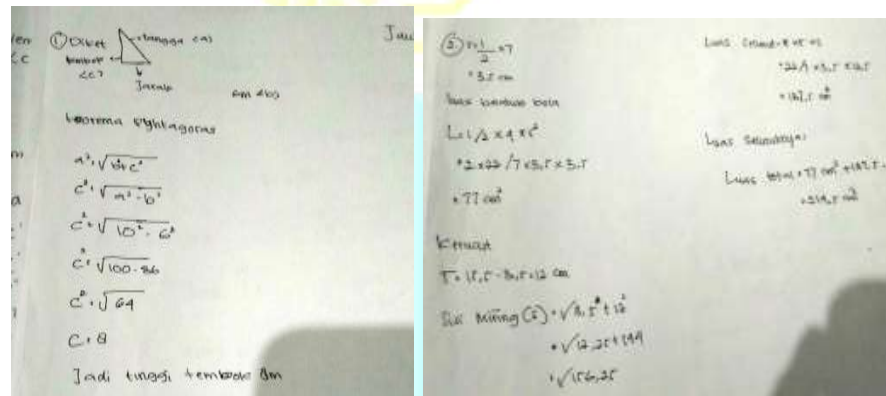 ① Diket tangga (a)
tembok
(c)?
Jarak
6m (b)
teorema pythagoras
a² = √b² + c²
c² = √a² - b²
c² = √10² - 6²
c² = √100 - 36
c² = √64
c = 8
Jadi tinggi tembok 8m
② r = 1/2 × 7
= 3.5 cm
L = 1/2 × 4 × r²
= 2 × 22/7 × 3.5 × 3.5
= 77 cm²
Kerucut
T = 15,5 - 3,5 = 12 cm
Sisi Miring (S) = √3,5² + 12²
= √12,25 + 144
= √156,25
Luas
= 22/7 × 3,5 × 12,5
= 137,5 cm²
Luas
Luas total = 77 cm² + 137,5
= 214,5 cm²